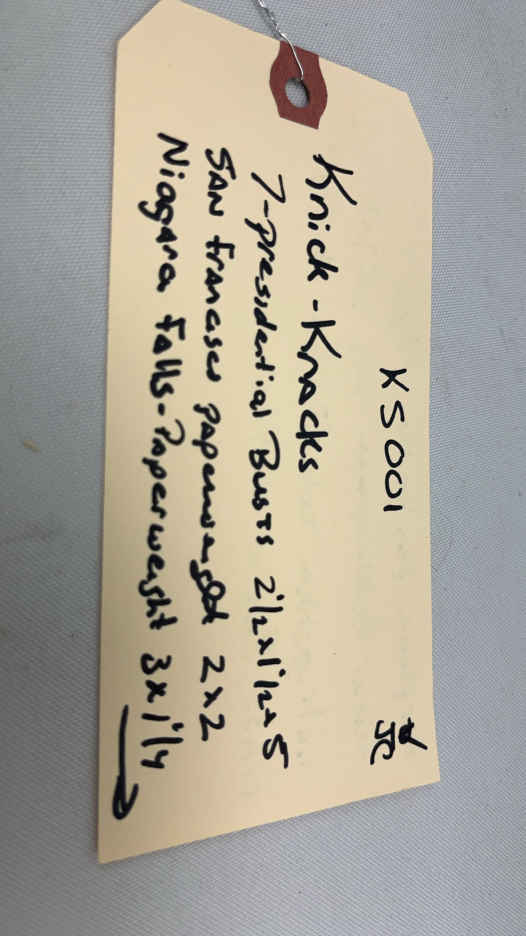 KS001
JC
Knick-Knacks
7-presidential Busts 2 1/2 x 1 1/2 x 5
SAN francisco paperweight 2x2
Niagara falls-Paperweight 3x1 1/4